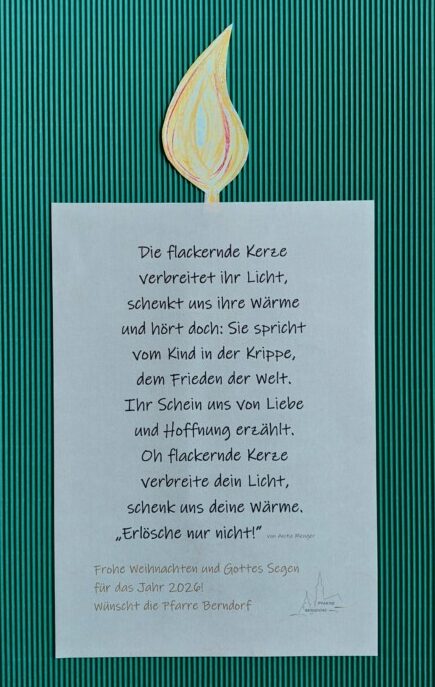 Die flackernde Kerze
verbreitet ihr Licht,
schenkt uns ihre Wärme
und hört doch: Sie spricht
vom Kind in der Krippe,
dem Frieden der Welt.
Ihr Schein uns von Liebe
und Hoffnung erzählt.
Oh flackernde Kerze
verbreite dein Licht,
schenk uns deine Wärme.
„Erlösche nur nicht!“ von Anita Menger
Frohe Weihnachten und Gottes Segen
für das Jahr 2026!
Wünscht die Pfarre Berndorf
PFARRE
BERNDORF